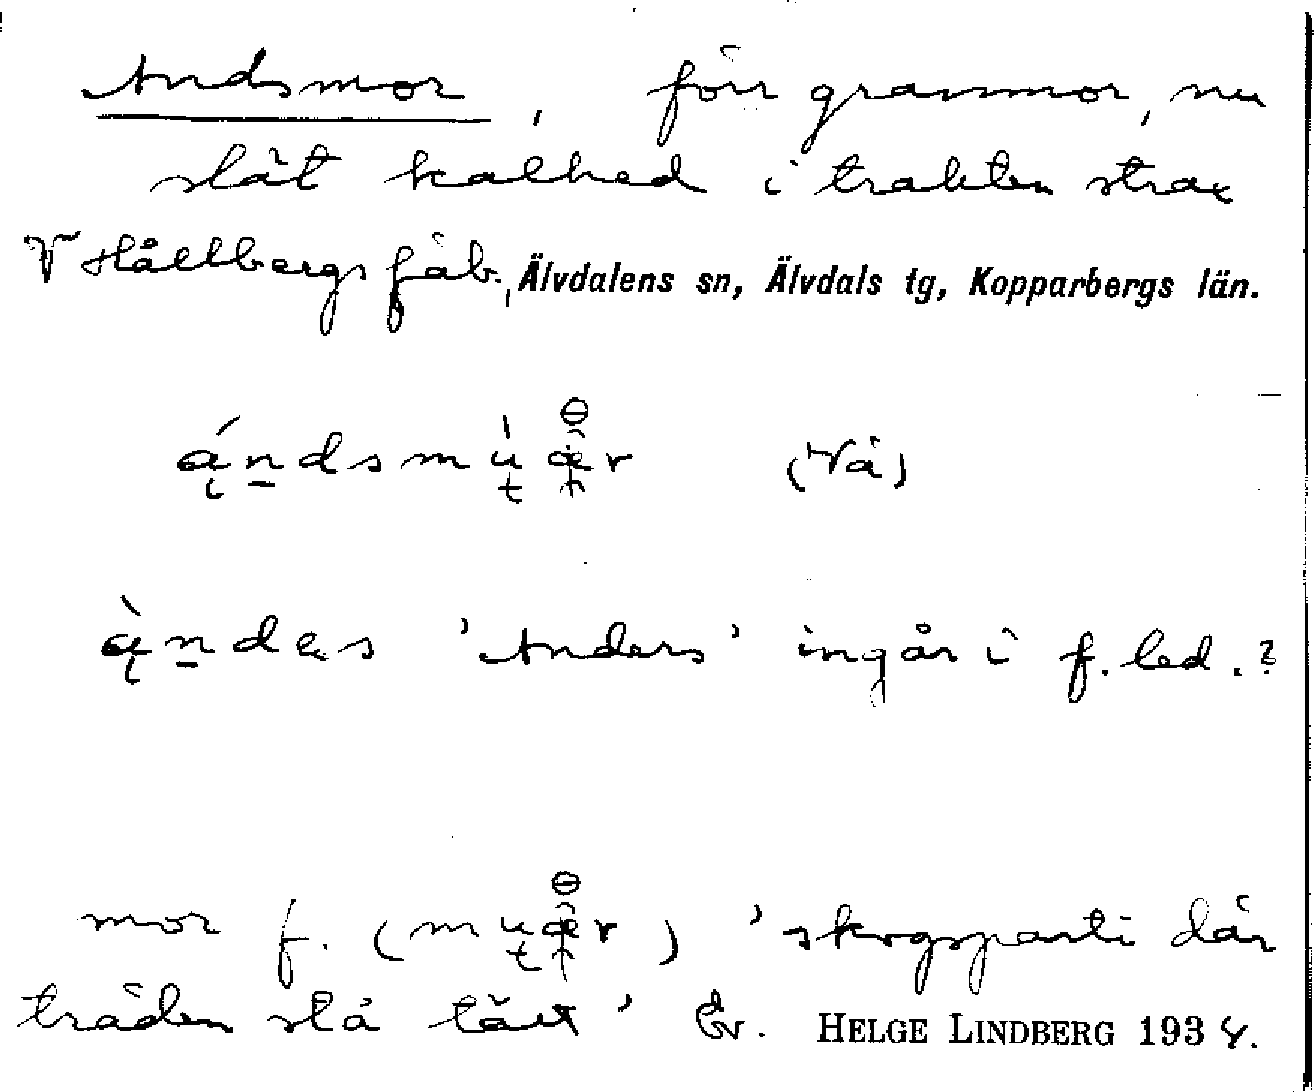 Andsmor, förr granmor, nu
slät kalhed i trakten strax
V Hållbergs fäb., Älvdalens sn, Älvdals tg, Kopparbergs län.
(Vä)
'Anders' ingår i f. led.?
mor f. ( ) 'skogsparti där
träden stå tätt' Lv. HELGE LINDBERG 1934.